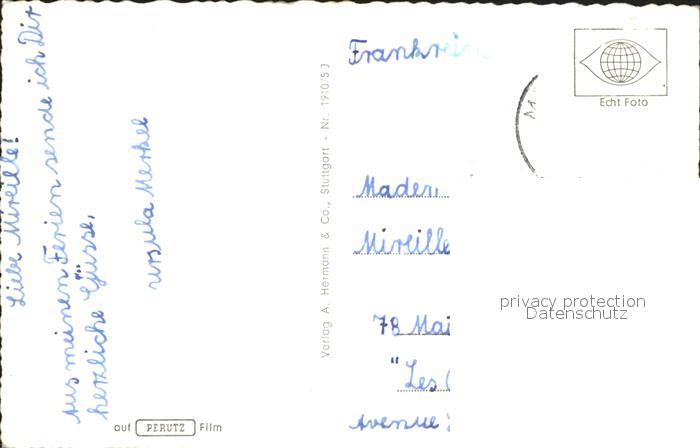 Liebe Mireille!
Aus meinen Ferien sende ich Dir
herzliche Grüsse,
Ursula Merkel
Verlag A. Hermann & Co., Stuttgart - Nr. 1910/53
auf PERUTZ Film
Echt Foto
Frankrei
Madem.
Mireille
78 Mai
"Les
Avenue
privacy protection
Datenschutz